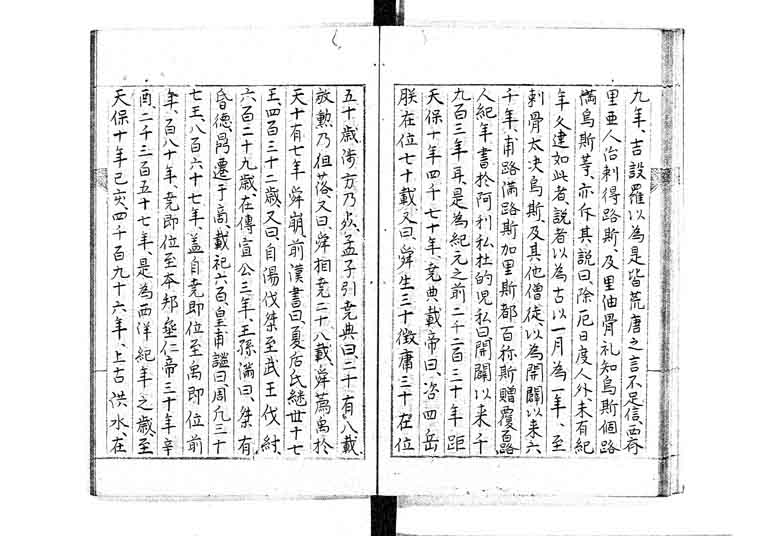 九年、吉設羅以為是皆荒唐之言不足信、西斉
里亜人治剌得路斯、及里由骨礼知烏斯個路
満烏斯等、亦斥其説曰、除厄日度人外、未有紀
年久建如此者、説者以為古以一月為一年、至
剌骨太决烏斯、及其他僧徒、以為開闢以来六
千年、甫路満路斯加里斯都百称斯贈覆百路
人紀年書於阿利私杜的児私曰開闢以来千
九百三年耳、是為紀元之前二千二百三十年距
天保十年四千七十年、堯典載帝曰、咨四岳
朕在位七十載又曰、舜生三十徴庸三十在位
五十歳陟方乃死、孟子引堯典曰、二十有八載
放勲乃徂落又曰、舜相堯二十八載舜薦禹於
天十有七年舜崩、前漢書曰夏后氏継世十七
王、四百三十二歳又曰、自湯伐桀至武王伐紂、
六百二十九歳、在傳宣公三年、王孫満曰、桀有
昏徳鼎遷于商、載祀六百、皇甫謐曰、周凡三十
七王、八百六十七年、蓋自堯即位至禹即位前
年、百八十年、堯即位至本邦垂仁帝三十年辛
酉、二千三百五十七年、是為西洋紀年之歳至
天保十年己亥、四千百九十六年、上古洪水、在